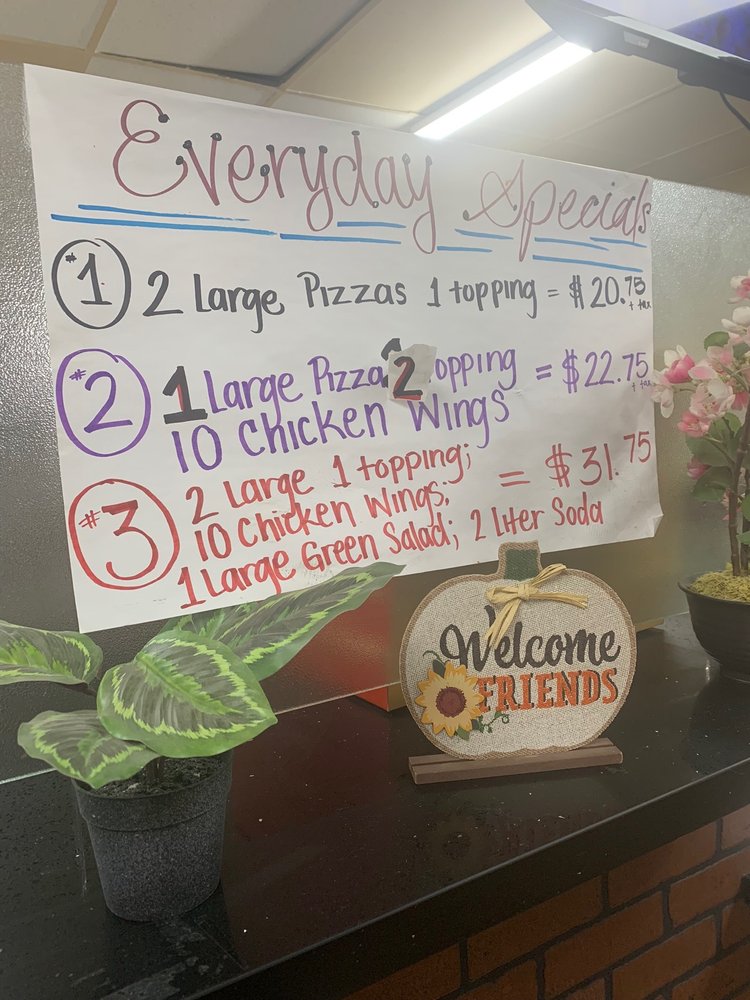 Everyday Specials
#1 2 Large Pizzas 1 topping = $20.75 + tax
#2 1 Large Pizza 2 opping = $22.75 + tax
10 Chicken Wings
#3 2 Large 1 topping; = $31.75
10 Chicken Wings;
1 Large Green Salad; 2 Liter Soda
Welcome
FRIENDS